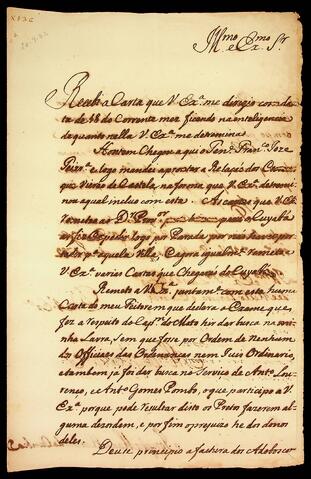 Illmo e Exmo Sr
Recebi a Carta que V. Exa. me dirigio com data
de 18 do Corrente mez ficando na inteligencia
de quanto nella V. Exa. me detremina.
Hontem chegou aqui o Tene. Franco. Joze
e logo mandei apromtar a Relação dos
que vierão de Castela, na forma que V. Exa. detremi-
nou a qual incluo com esta. As cartas que V. Exa.
Remeteo ao Dr. Proor. para o Cuyabá
as fis Expedir logo por Parada por não haver por-
tador pa. aquela Villa, e agora igualmte. Remeto a
V. Exa. varias Cartas que chegarão do Cuyabá.
Remeto a V. Exa. juntamte. com esta huma
Carta do meu Feitor em que declara o Exame que
fez a respeito do Capm. do Mato hir dar busca na mi-
nha Lavra, sem que fose por Ordem de Nenhum
dos Officiaes das Ordenanças nem Juis Ordinario,
e tambem já foi dar busca no Serviço de Anto. Lou-
renço, e Anto. Gomes Pombo, o que participo a V.
Exa. porque pode Rezultar disto os Pretos fazerem al-
guma dezordem, e por fim o prejuizo he dos donos
deles.
Deuse principio a factura dos Adobos com